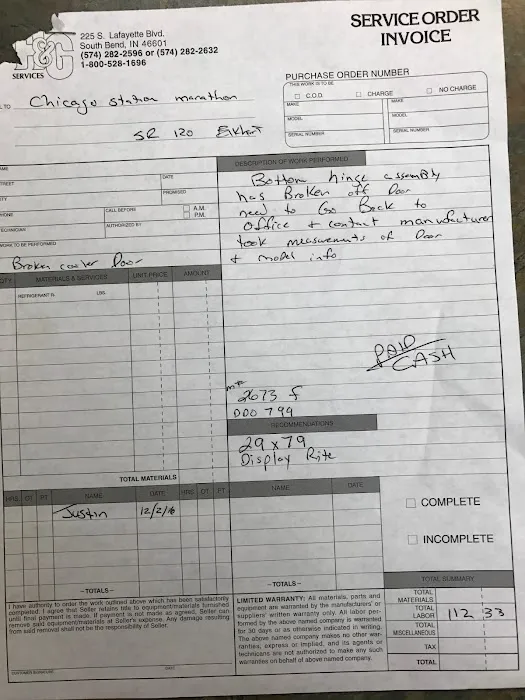 SERVICE ORDER
INVOICE
225 S. Lafayette Blvd.
South Bend, IN 46601
(574) 282-2596 or (574) 282-2632
1-800-528-1696
SERVICES
PURCHASE ORDER NUMBER
THIS WORK IS TO BE
C.O.D. CHARGE NO CHARGE
MAKE MAKE
MODEL MODEL
SERIAL NUMBER SERIAL NUMBER
TO Chicago station marathon
SR 120
DESCRIPTION OF WORK PERFORMED
DATE
PROMISED
CALL BEFORE A.M.
P.M.
AUTHORIZED BY
WORK TO BE PERFORMED
Broken cooler Door
Bottom hinge assembly
has Broken off Door
need to Go Back to
office + contact manufacturer
took measurements of Door
+ model info
QTY. MATERIALS & SERVICES UNIT PRICE AMOUNT
REFRIGERANT R- LBS.
PAID
CASH
2673 f
DOO 794
RECOMMENDATIONS
29 x 79
Display Rite
TOTAL MATERIALS
HRS OT PT NAME DATE HRS OT PT NAME DATE
Justin 12/2/16
COMPLETE
INCOMPLETE
- TOTALS -
- TOTALS -
I have authority to order the work outlined above which has been satisfactorily
completed. I agree that Seller retains title to equipment/materials furnished
until final payment is made. If payment is not made as agreed, Seller can
remove said equipment/materials at Seller's expense. Any damage resulting
from said removal shall not be the responsibility of Seller.
CUSTOMER SIGNATURE DATE
LIMITED WARRANTY: All materials, parts and
equipment are warranted by the manufacturers' or
suppliers' written warranty only. All labor per-
formed by the above named company is warranted
for 30 days or as otherwise indicated in writing.
The above named company makes no other war-
ranties, express or implied, and its agents or
technicians are not authorized to make any such
warranties on behalf of above named company.
TOTAL SUMMARY
TOTAL
MATERIALS
TOTAL
LABOR 112 33
TOTAL
MISCELLANEOUS
TAX
TOTAL